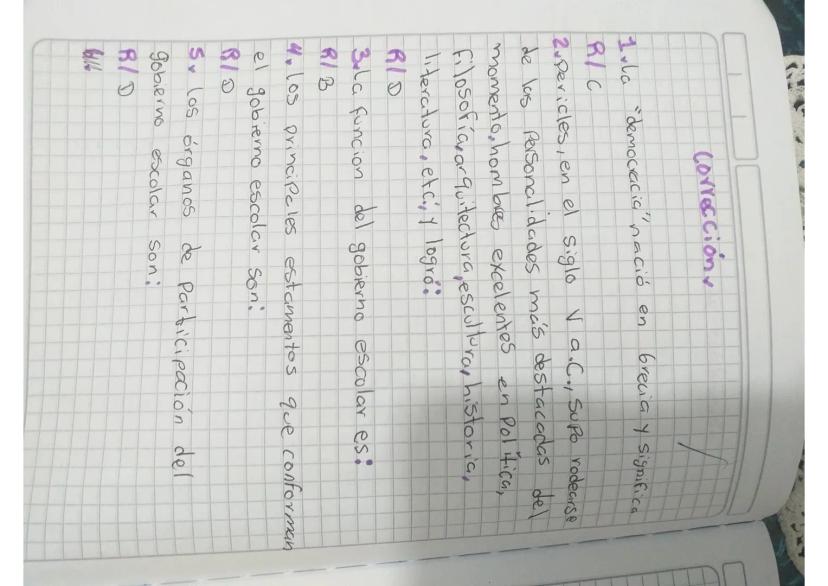 Corrección.
1. La "democracia" nació en Grecia y significa
R/ C
2. Pericles, en el siglo V a.C., supo rodearse
de las Personalidades más destacadas del
momento, hombres excelentes en Política,
filosofía, arquitectura, escultura, historia,
literatura, etc; y logró:
R/ D
3. La funcion del gobierno escolar es:
R/ B
4. Los principales estamentos que conforman
el gobierno escolar son:
R/ D
5. Los órganos de participación del
gobierno escolar son:
R/ D